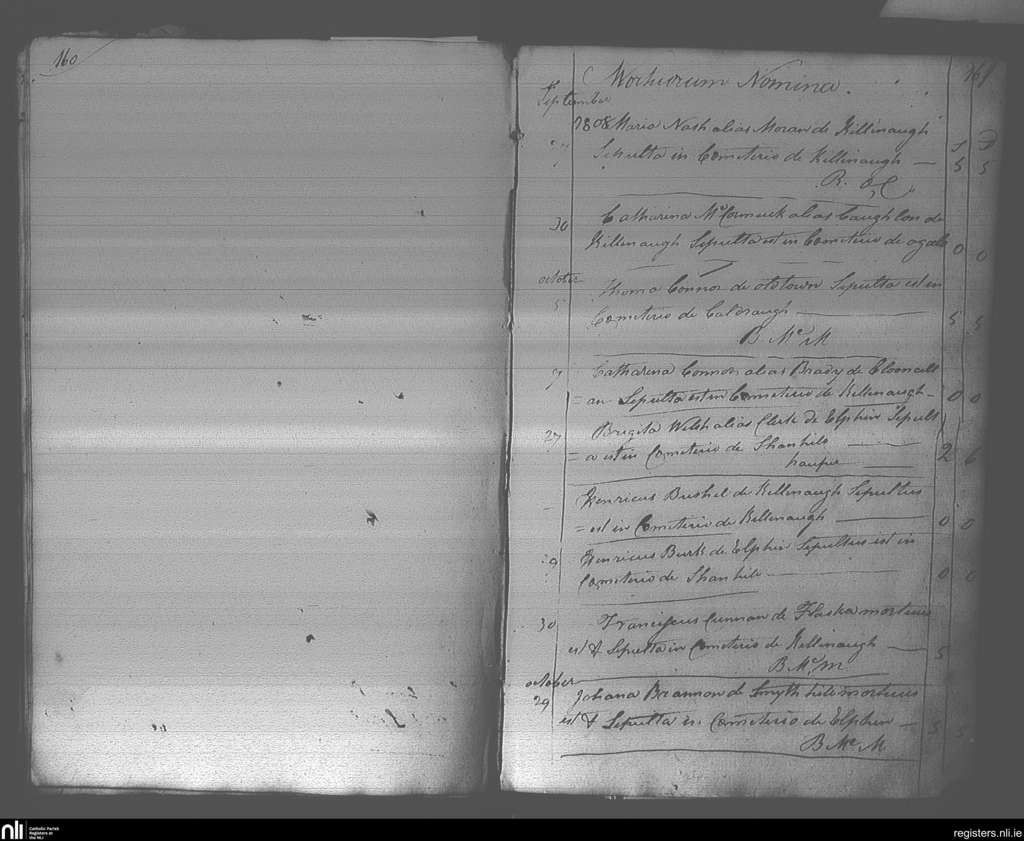 160
161
Mortuorum Nomina.
September
1808 Maria Nash alias Moran de Killinaugh
Sepulta in Cometerio de Killinaugh — 5 5
B.
30 Catharina McCormick alias Caughlan de
Killinaugh Sepulta est in Cometerio de 0 0
october
5 Thoma Connor de oldtown Sepulta est in
Cometerio de Caldraugh — 5 5
B. Mc M
7 Catharina Connor alias Brady de Clooncull
= an Sepulta est in Cometerio de Killinaugh - 0 0
27 Brigita Welsh alias Clerk de Elphin Sepult
= a est in Cometerio de Shanhilo — 2 6
pauper —
Henricus Bushel de Killinaugh Sepultus
= est in Cometerio de Killinaugh — 0 0
29 Henricus Burk de Elphin Sepultus est in
Cometerio de Shanhilo — 0 0
30 Franciscus Cunnan de Flaska mortuus
est & Sepulta in Cometerio de Killinaugh — 5
B Mc M
october
29 Johana Brannon de Smyth hill mortuus
est & Sepulta in Cometerio de Elphin — 5 5
B Mc M
nli
Catholic Parish
Registers at
the NLI
registers.nli.ie